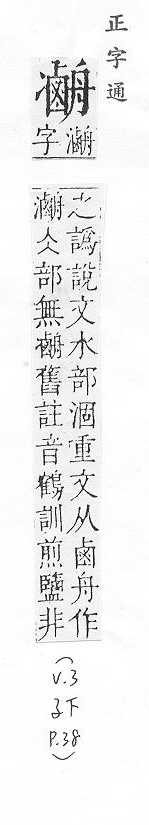 正字通
𣿅
字
之譌說文水部涸重文从鹵舟作
𣿅仌部無舊註音鶴訓煎鹽非
(V.3
子下
P.38)